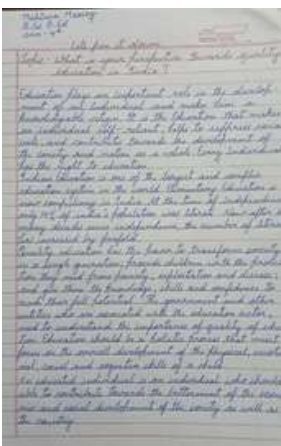 B.Sc B.Ed
Let's pen it down
Topic - What is your perspective towards quality
education in India ?
Education plays an important role in the develop-
ment of an individual and makes him a
knowledgeable citizen. It is the Education that makes
an individual self-reliant, helps to suppress social
evils and contribute towards the development of
the society and nation as a whole. Every individual
has the right to education.
Indian Education is one of the largest and complex
education system in the world. Elementary Education is
now compulsory in India. At the time of independence
only of india's population was literate. Now after so
many decades since independence, the number of literate
has increased by
Quality education has the power to transform societies
in a single generation, provide children with the protection
they need from poverty, exploitation and disease,
and give them the knowledge, skills and confidence to
reach their full potential. The government and other
entities who are associated with the education sector,
need to understand the importance of quality of edu-
tion. Education should be a holistic process that must
focus on the overall development of the physical, emotio-
nal, social and cognitive skills of a child.
An educated individual is an individual who should
able to contribute towards the betterment of the econo-
mic and social development of the society as well as
the country.